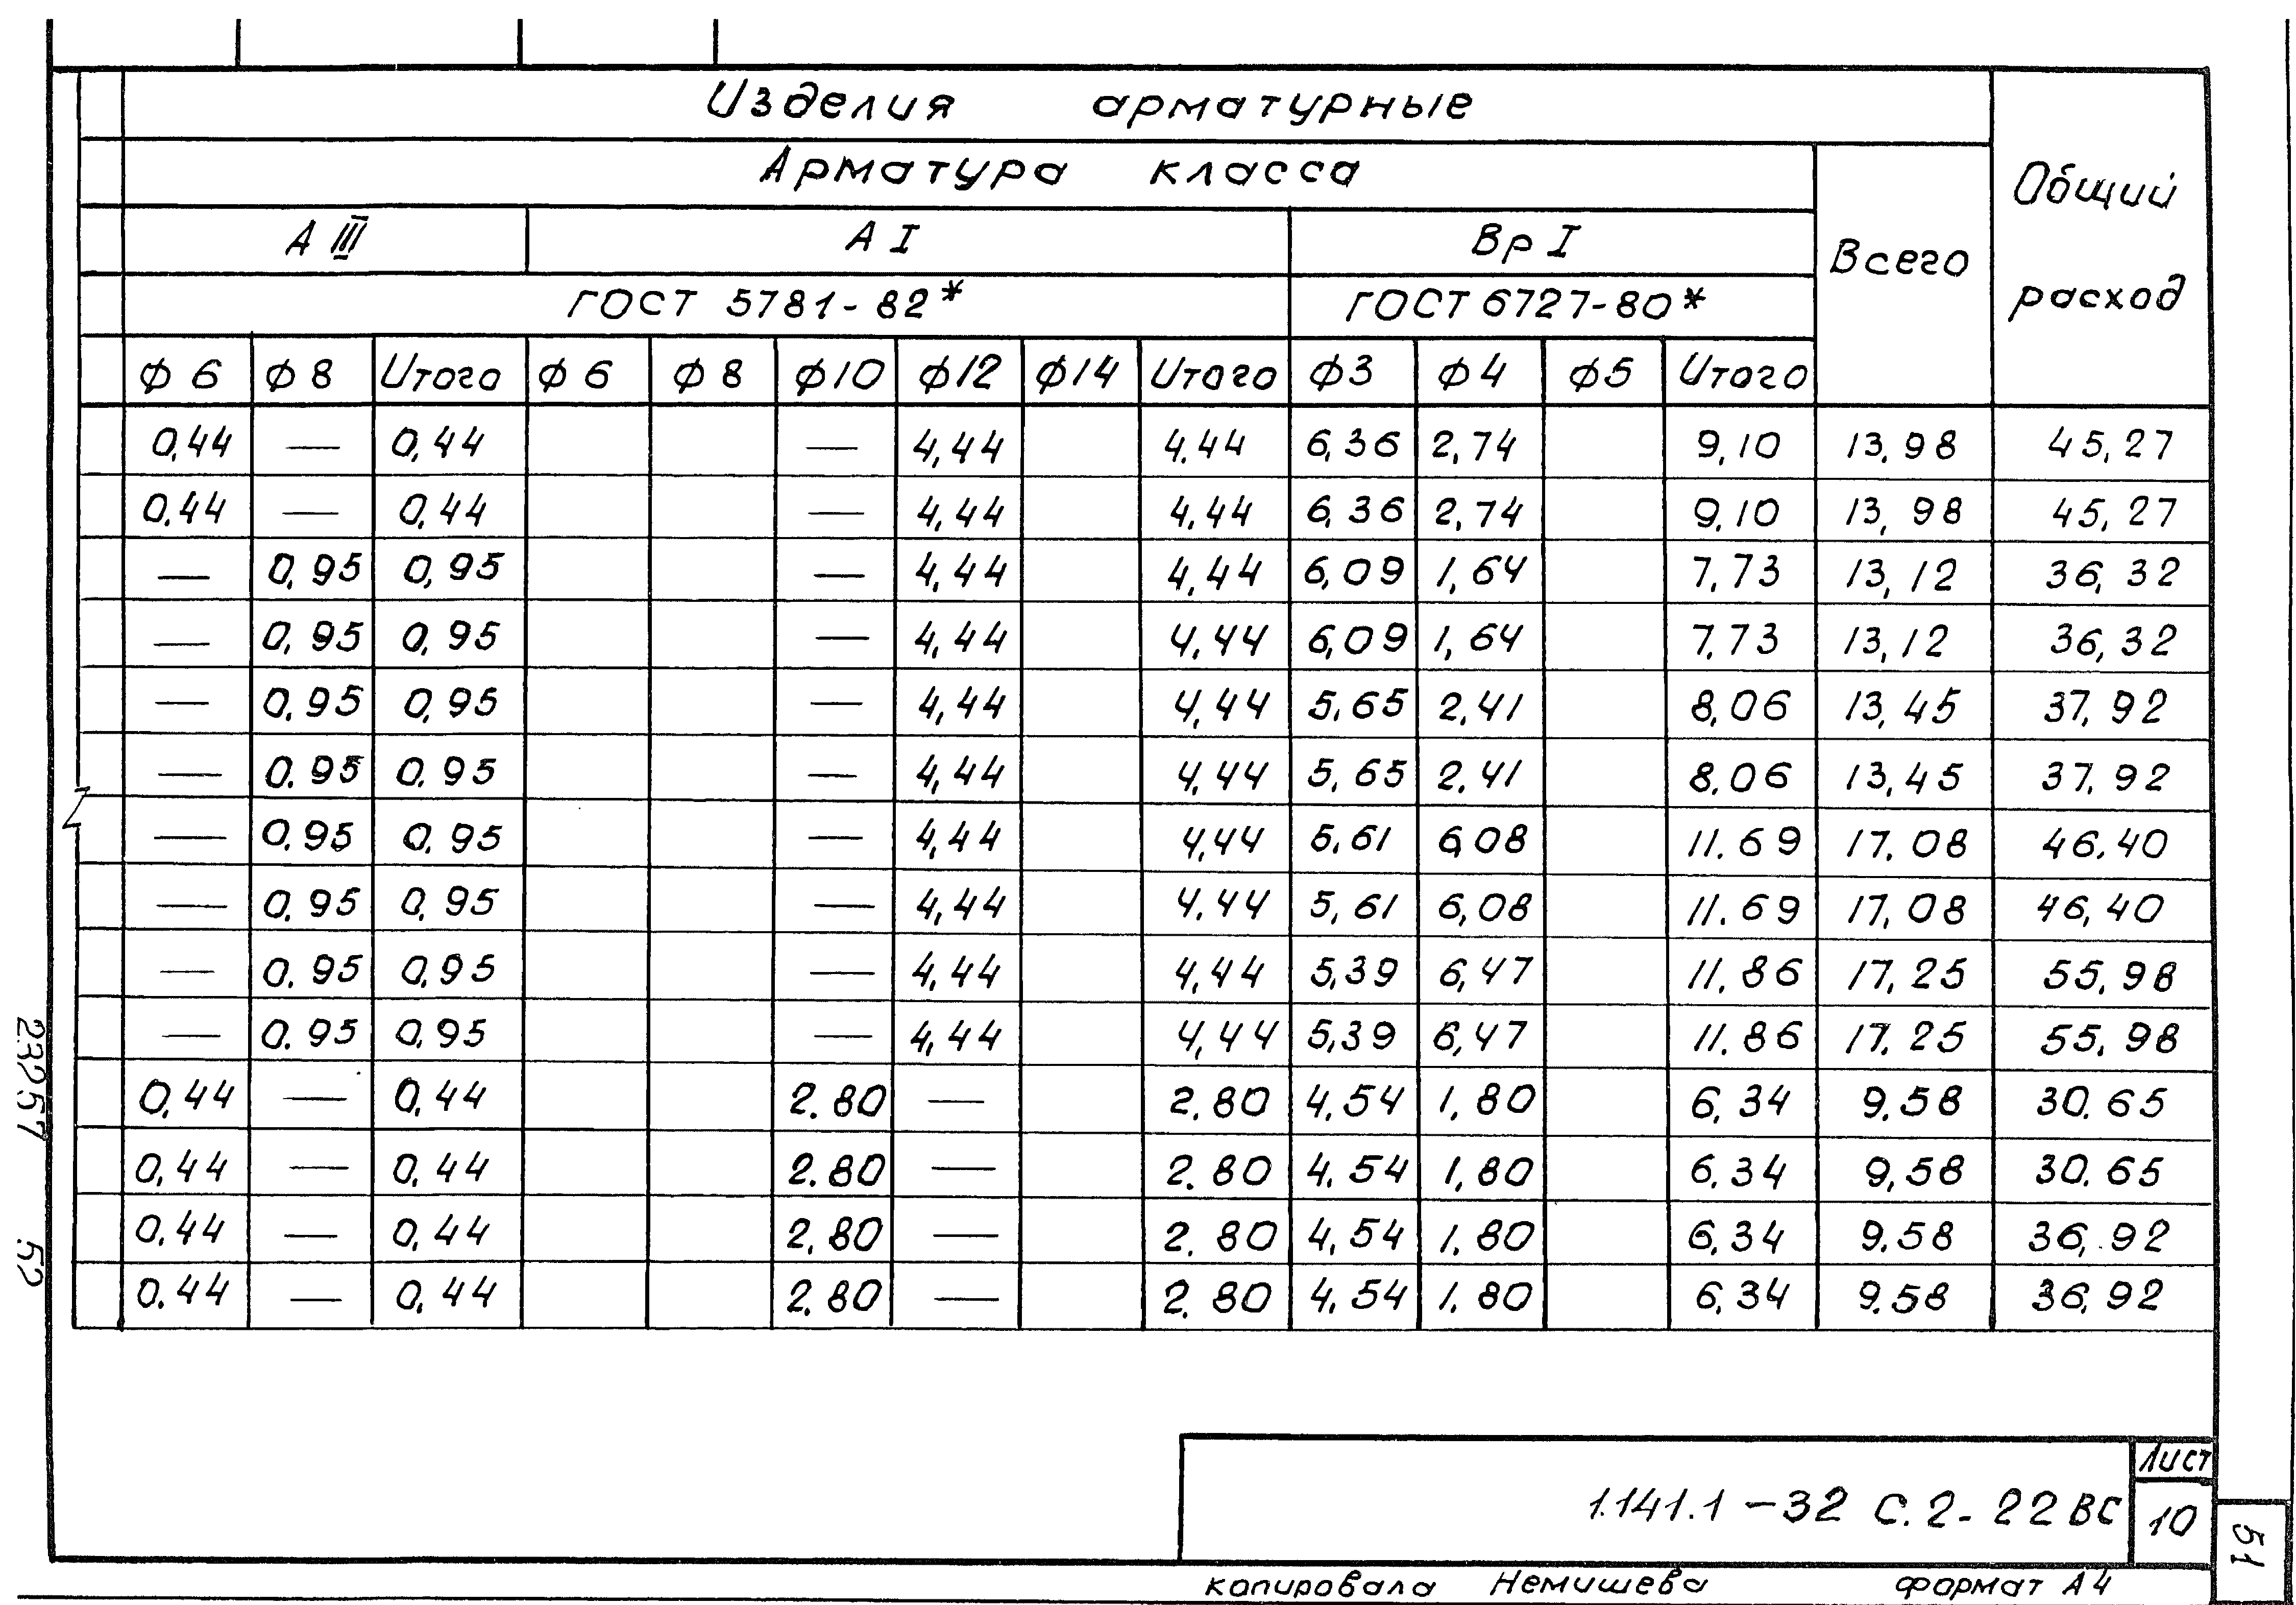 Изделия арматурные
Общий расход
Арматура класса
Всего
А III А I Вр I
ГОСТ 5781-82* ГОСТ 6727-80*
ф6 ф8 Итого ф6 ф8 ф10 ф12 ф14 Итого ф3 ф4 ф5 Итого
0,44 — 0,44 — 4,44 4.44 6,36 2,74 9,10 13,98 45,27
0.44 — 0,44 — 4,44 4,44 6,36 2,74 9,10 13,98 45,27
— 0,95 0,95 — 4,44 4,44 6,09 1,64 7,73 13,12 36,32
— 0,95 0,95 — 4,44 4,44 6,09 1,64 7,73 13,12 36,32
— 0,95 0,95 — 4,44 4,44 5,65 2,41 8,06 13,45 37,92
— 0.95 0.95 — 4,44 4,44 5,65 2.41 8,06 13,45 37,92
— 0.95 0,95 — 4,44 4,44 5,61 6,08 11.69 17.08 46.40
— 0,95 0,95 — 4,44 4.44 5,61 6,08 11.69 17,08 46,40
— 0,95 0,95 — 4,44 4,44 5,39 6,47 11,86 17,25 55,98
— 0.95 0,95 — 4,44 4,44 5,39 6,47 11.86 17.25 55,98
0,44 — 0,44 2.80 — 2.80 4,54 1,80 6,34 9,58 30.65
0,44 — 0,44 2.80 — 2.80 4,54 1,80 6,34 9,58 30.65
0,44 — 0,44 2,80 — 2,80 4,54 1.80 6,34 9.58 36,92
0.44 — 0,44 2.80 — 2.80 4,54 1.80 6,34 9.58 36,92
23257 52
Лист
1.141.1-32 С.2-22ВС 10
51
копировала Немишева формат А4